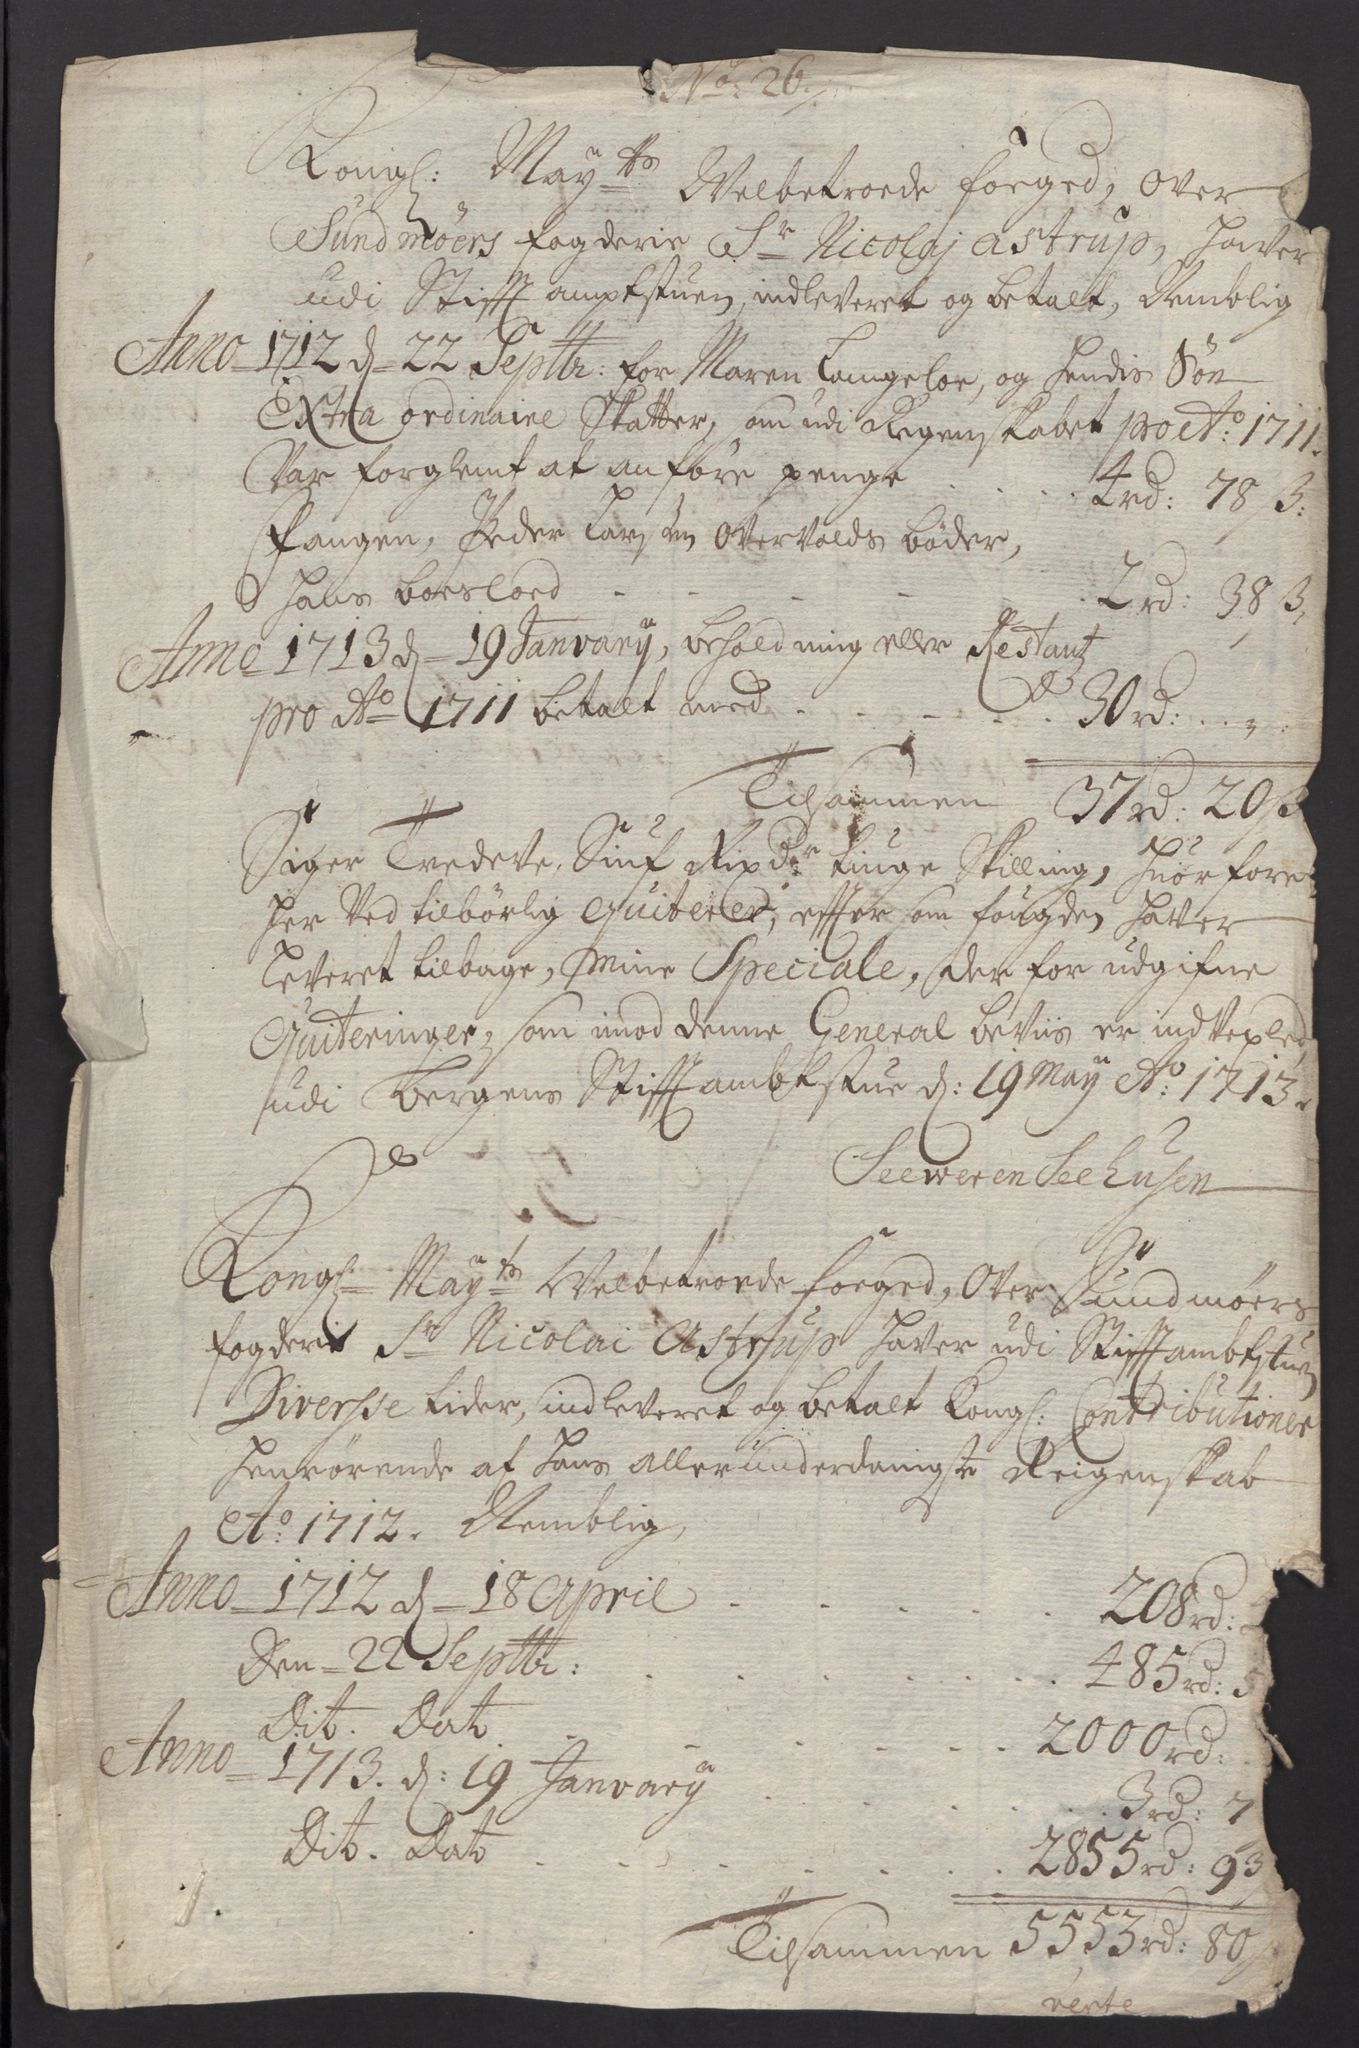 No: 26.
Kongl: Mayts Welbetroede foeged, over
Sundmöers fogderie Sr Nicolaj Astrup, haver
udi Stifft amptstuen, indleveret og betalt, Nemblig
Anno 1712 d 22 Septbr: for Maren Langeloe, og hendis Sön
Extra ordinaire Skatter, som udi Regenskabet pro Ao: 1711.
Var forglemt at anföre penge . . . . 4 rd: 78 s:
fangen, Peder Larsen overvolds böder,
hans boesloed - - - - 2 rd: 38 s,
Anno 1713 d 19 January, beholdning eller Restantz
pro Ao 1711 betalt med . . . . . 30 rd: . . „ .
Tilsammen 37 rd: 20 s
Siger Tredeve Siuf Rixdr tiuge Skilling, huorfore
her Ved tilbörlig Quiterer, effter som fougden haver
leveret tilbage, mine Speciale, der for udgifne
Quiteringer, som imod denne General beviis er indvexled,
udi Bergens Stifft ambtstue d: 19 May Ao: 1713.
Seeweren Seehusen
Kongl Mayts Welbetroede foeged, over Sundmöers
fogderie Sr Nicolai Astrup haver udi Stifft ambtstuen
Diversse tider, indleveret og betalt Kongl: Contributioner
henrörende af hans allerunderdanigste Reigenskab
Ao: 1712. Nemblig,
Anno 1712 d 18 April . . . . . 208 rd:
Den 22 Septbr: . . . . . . 485 rd: 5
Dit. Dat . . . . . . 2000 rd: .
Anno 1713. d: 19 January . . . . 3 rd: 7
Dit. Dat . . . . . . 2855 rd: 93
Tilsammen 5553 rd: 80
verte